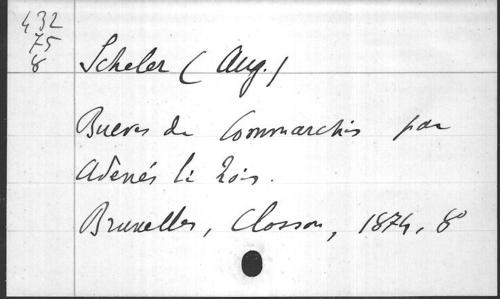 432
75
8
Scheler (Aug.)
Bueves de Commarchis par
Adenés li Rois.
Bruxelles, Closson, 1874, 8°